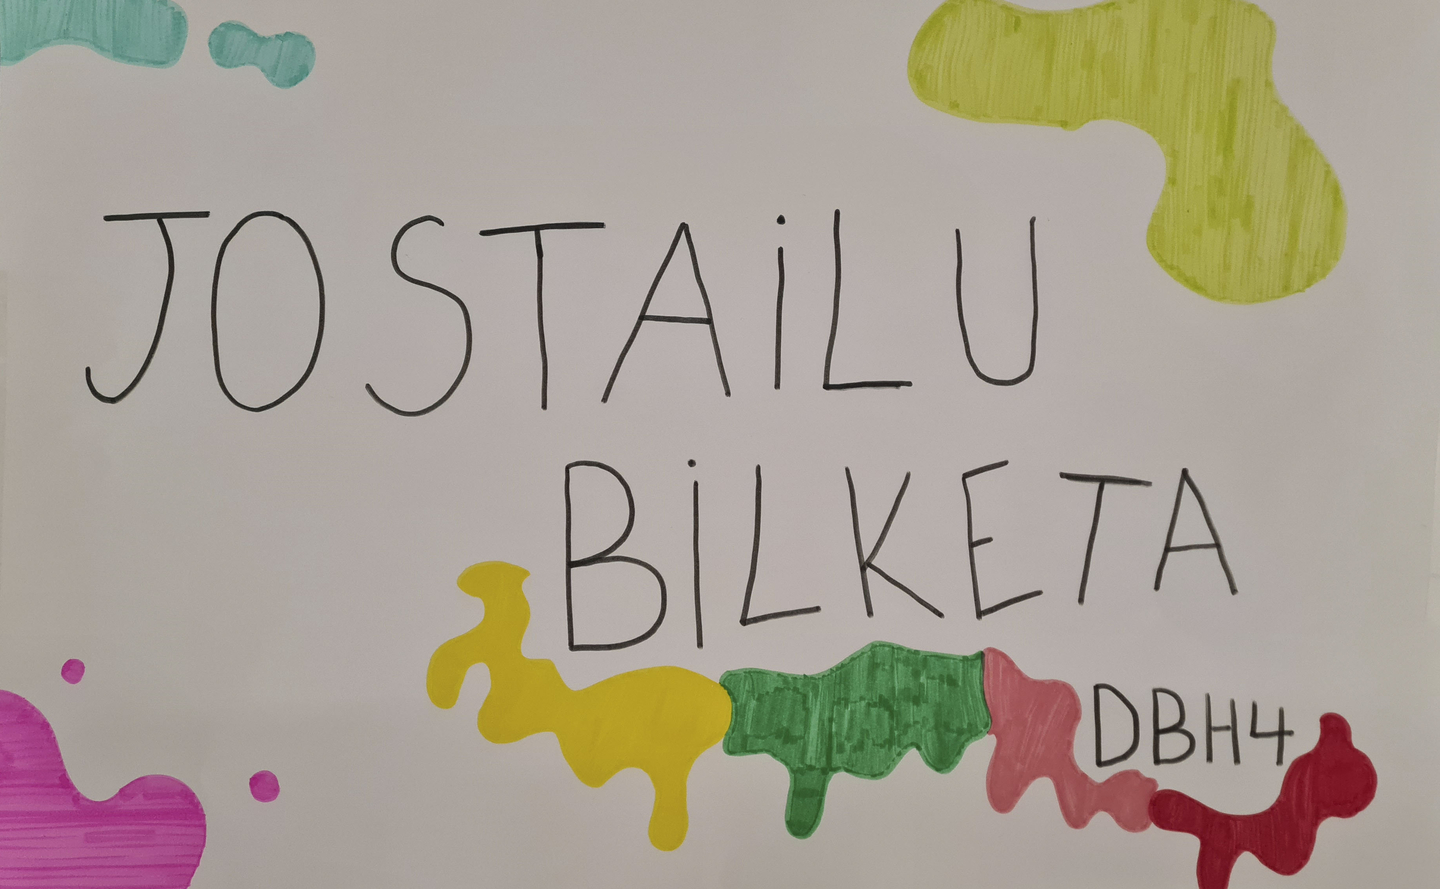 JOSTAiLU
BiLKETA
DBH4